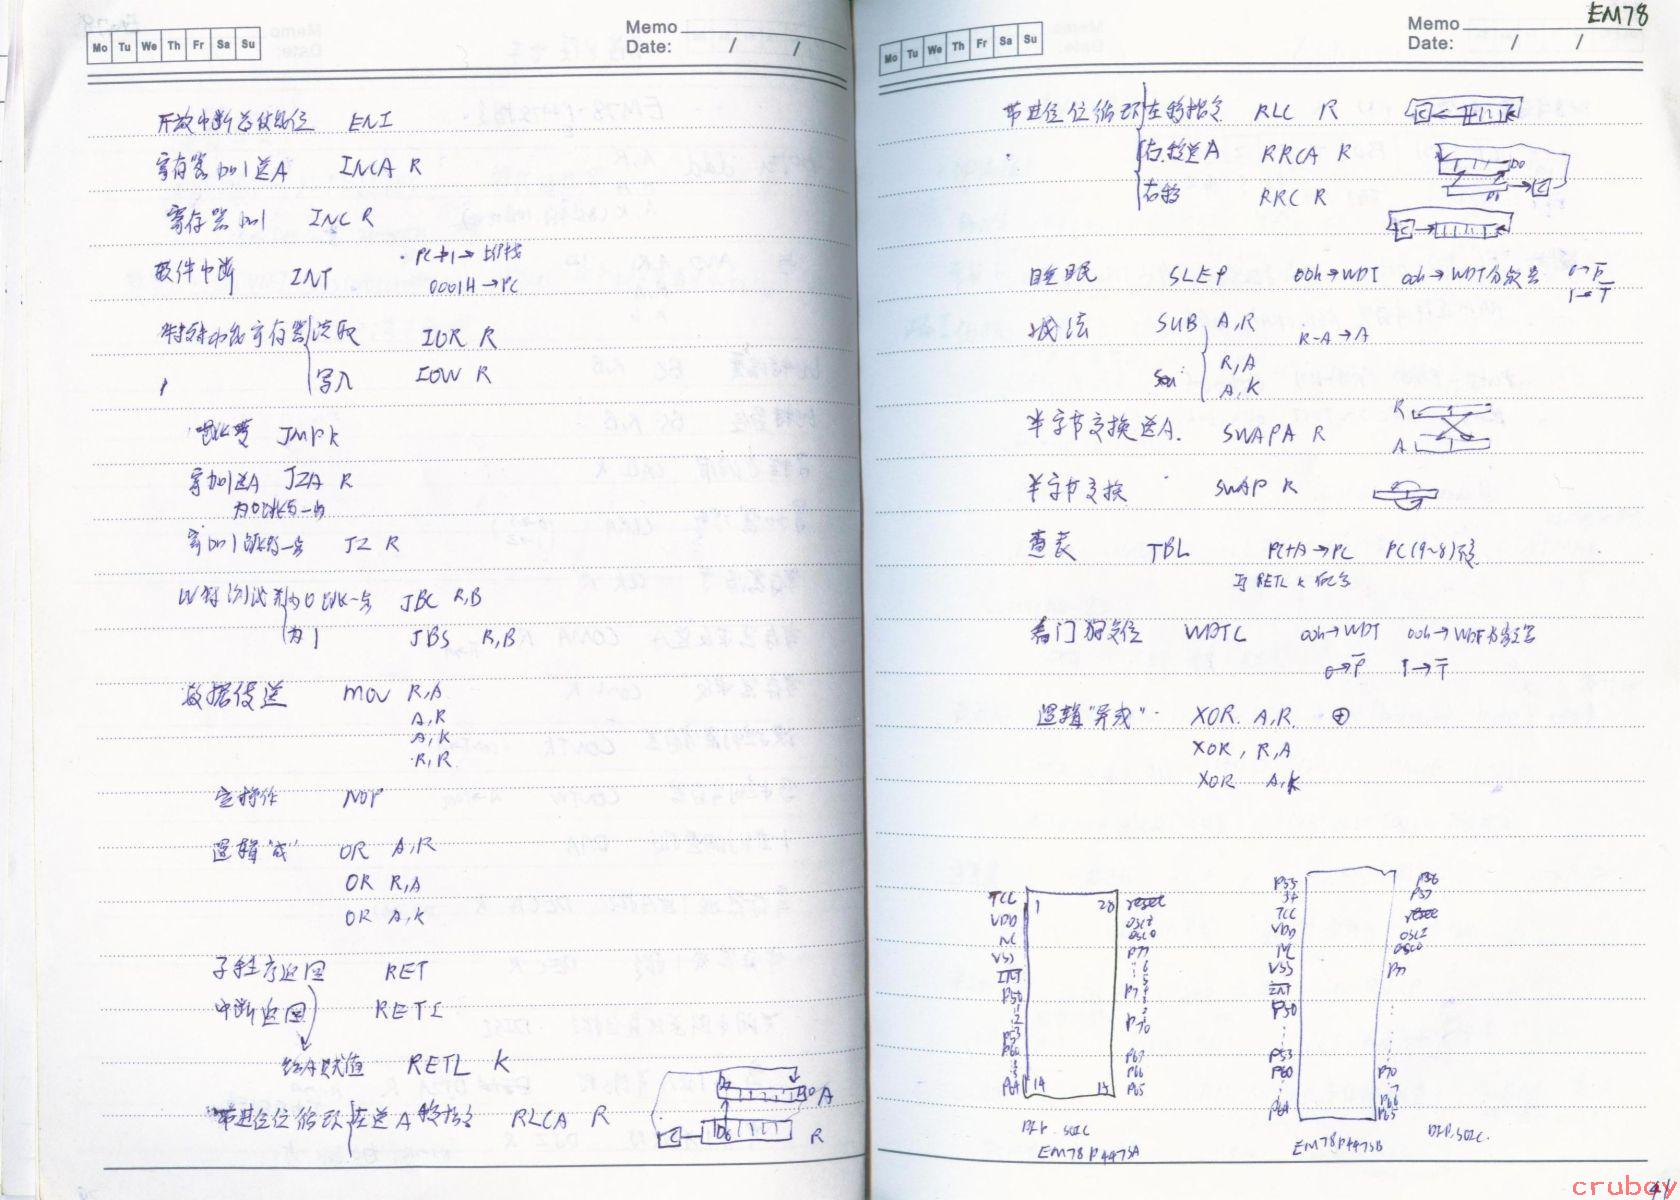 Mo Tu We Th Fr Sa Su
Memo
Date: / /
开放中断总使能位 ENI
寄存器加1送A INCA R
寄存器加1 INC R
软件中断 INT
PC+1→堆栈
0001H→PC
特殊功能寄存器 读取 IOR R
写入 IOW R
跳转 JMP K
寄加1送A JZA R
为0跳转一步
寄加1 跳转一步 JZ R
测试 为0跳一步 JBC R,B
为1 JBS R,B
数据传送 MOV R,A
A,R
A,K
R,R
空操作 NOP
逻辑"或" OR A,R
OR R,A
OR A,K
子程序返回 RET
中断返回 RETI
给A赋值 RETL K
带进位位循环 左送A 移指令 RLCA R
A
C
R
Mo Tu We Th Fr Sa Su
Memo EM78
Date: / /
带进位位循环 左移指令 RLC R
右移送A RRCA R
右移 RRC R
睡眠 SLEP 00h→WDT 00h→WDT分频器 0→P
1→T
减法 SUB A,R R-A→A
R,A
A,K
半字节交换送A. SWAPA R
R
A
半字节交换 SWAP R
查表 TBL PC+A→PC PC(9~8)
与 RETL K 配合
看门狗复位 WDTC 00h→WDT 00h→WDT分频器
0→P 1→T
逻辑"异或" XOR A,R ⊕
XOR, R,A
XOR A,K
TCC 1 28 reset
VDD OSCI
NC OSCO
VSS P77
INT 6
P50 5
1 P74
2 P70
P53 P67
P60 P66
P64 14 15 P65
DIP. SOIC
EM78P447SA
P55 P56
54 P57
TCC reset
VDD OSCI
NC OSCO
VSS P77
INT
P50
P53
P60 P70
P64 P65
EM78P447SB DIP. SOIC.
cruboy